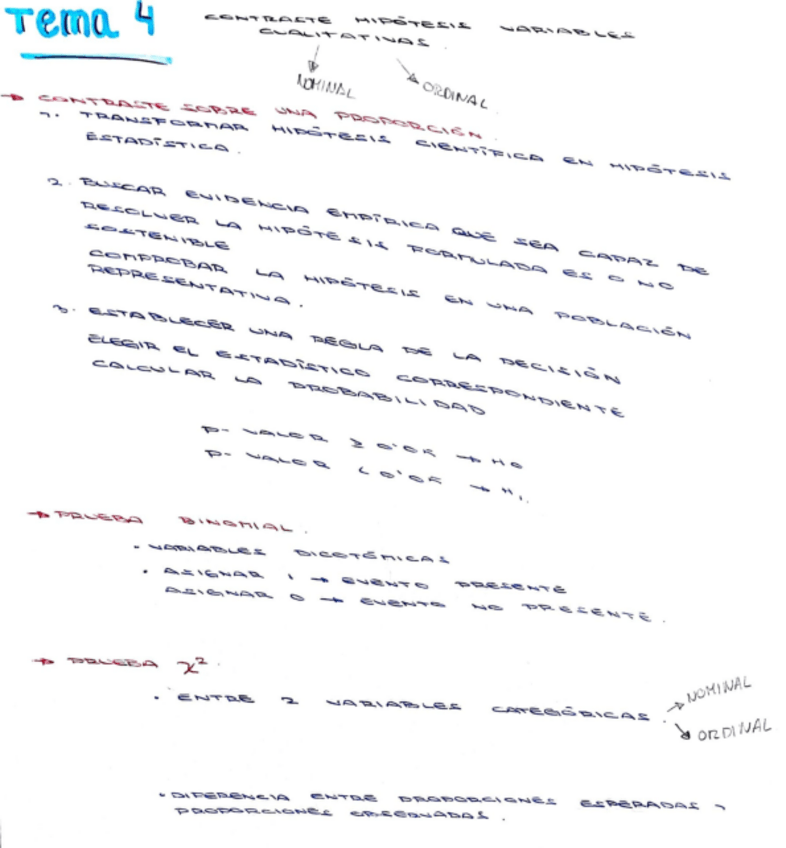 Tema 4
CONTRASTE HIPÓTESIS VARIABLES
CUALITATIVAS.
NOMINAL
ORDINAL
→ CONTRASTE SOBRE UNA PROPORCIÓN.
1. TRANSFORMAR HIPÓTESIS CIENTÍFICA EN HIPÓTESIS
ESTADÍSTICA.
2. BUSCAR EVIDENCIA EMPÍRICA QUE SEA CAPAZ DE
RESOLVER LA HIPÓTESIS FORMULADA ES O NO
SOSTENIBLE
COMPROBAR LA HIPÓTESIS EN UNA POBLACIÓN
REPRESENTATIVA.
3. ESTABLECER UNA REGLA DE LA DECISIÓN
ELEGIR EL ESTADÍSTICO CORRESPONDIENTE
CALCULAR LA PROBABILIDAD
P- VALOR ≥ 0'05 → H0
P- VALOR < 0'05 → H1.
→ PRUEBA BINOMIAL.
• VARIABLES DICOTÓMICAS
• ASIGNAR 1 → EVENTO PRESENTE
ASIGNAR 0 → EVENTO NO PRESENTE.
→ PRUEBA χ².
• ENTRE 2 VARIABLES CATEGÓRICAS.
→ NOMINAL
↘ ORDINAL
• DIFERENCIA ENTRE PROPORCIONES ESPERADAS Y
PROPORCIONES OBSERVADAS.